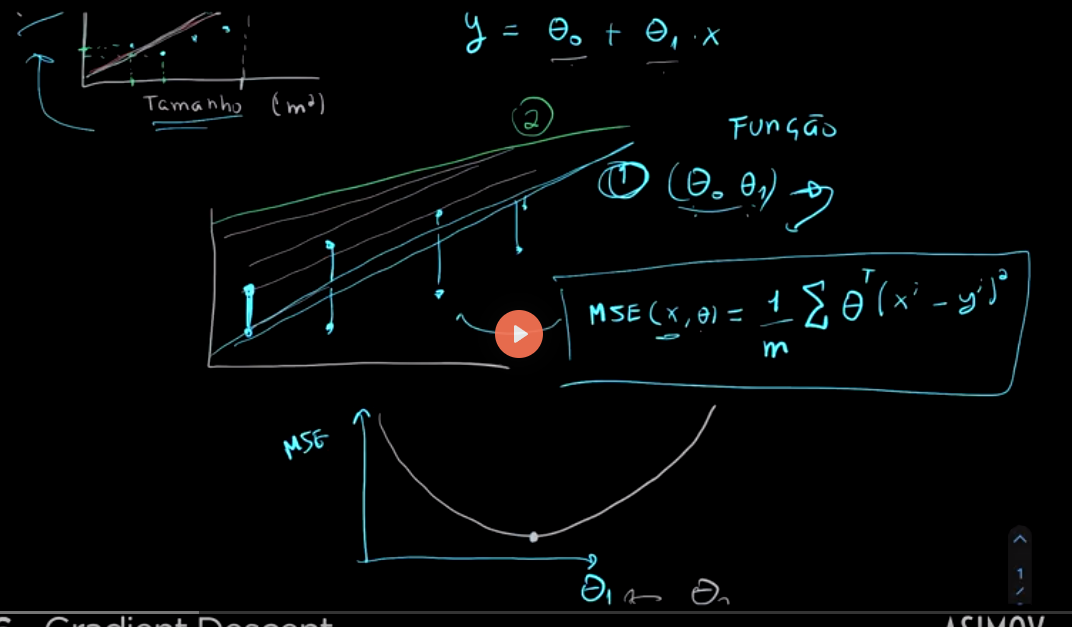 y = θ₀ + θ₁ · x
Tamanho (m²)
②
FUNÇÃO
① (θ₀ θ₁)
MSE(x, θ) = 1/m ∑ θᵀ(xⁱ - yⁱ)²
MSE
θ₁
1
Gradient Descent
ASIMOV